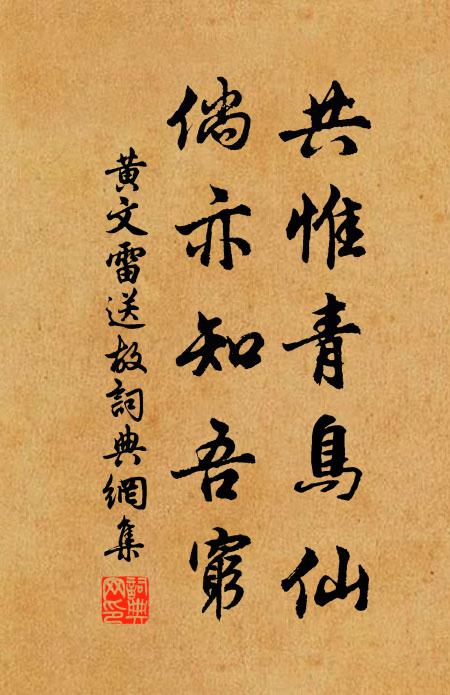 共惟青鳥仙
倘亦知吾窮
黄文雷送故詞典網集
詞典网印